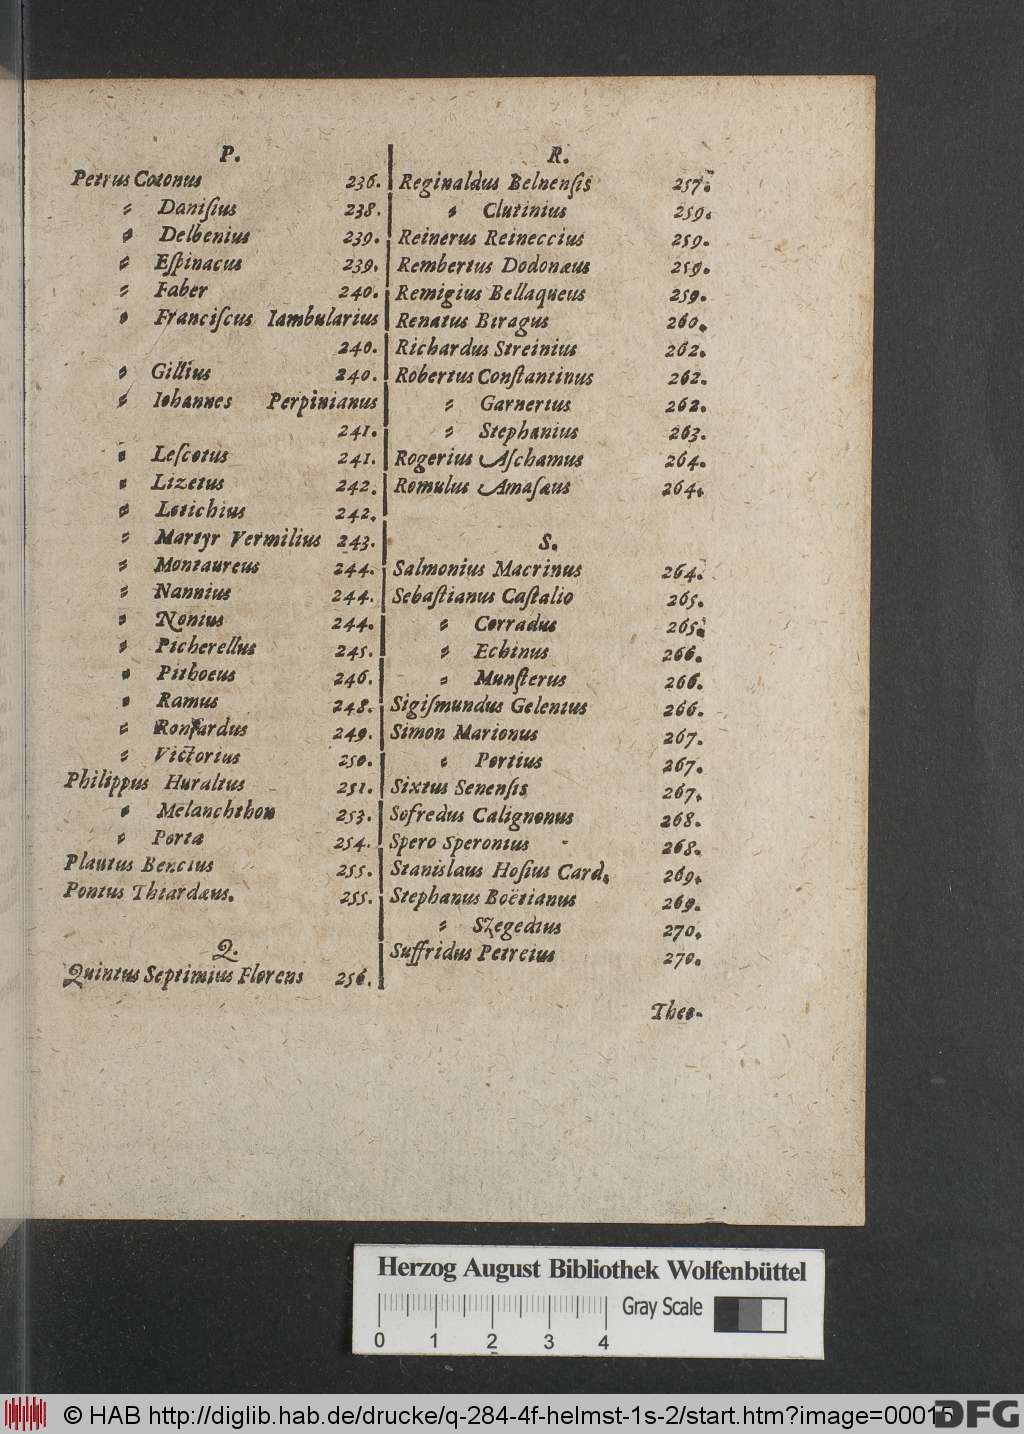 P.
Petrus Cotonus 236.
〃 Daniſius 238.
〃 Delbenius 239.
〃 Eſpinacus 239.
〃 Faber 240.
〃 Franciſcus Iambularius
240.
〃 Gillius 240.
〃 Iohannes Perpinianus
241.
〃 Leſcotus 241.
〃 Lizetus 242.
〃 Lotichius 242.
〃 Martyr Vermilius 243.
〃 Montaureus 244.
〃 Nannius 244.
〃 Nonius 244.
〃 Picherellus 245.
〃 Pithoeus 246.
〃 Ramus 248.
〃 Ronſardus 249.
〃 Victorius 250.
Philippus Huraltus 251.
〃 Melanchthon 253.
〃 Porta 254.
Plautus Bencius 255.
Pontus Thiardæus. 255.
Q.
Quintus Septimius Florens 256.
R.
Reginaldus Belnenſis 257.
〃 Clutinius 259.
Reinerus Reineccius 259.
Rembertus Dodonæus 259.
Remigius Bellaqueus 259.
Renatus Biragus 260.
Richardus Streinius 262.
Robertus Conſtantinus 262.
〃 Garnerius 262.
〃 Stephanius 263.
Rogerius Aſchamus 264.
Romulus Amaſæus 264.
S.
Salmonius Macrinus 264.
Sebaſtianus Caſtalio 265.
〃 Corradus 265.
〃 Echinus 266.
〃 Munſterus 266.
Sigiſmundus Gelenius 266.
Simon Marionus 267.
〃 Portius 267.
Sixtus Senenſis 267.
Sofredus Calignonus 268.
Spero Speronius 268.
Stanislaus Hoſius Card. 269.
Stephanus Boëtianus 269.
〃 Szegedius 270.
Suffridus Petreius 270.
Theo-
Herzog August Bibliothek Wolfenbüttel
Gray Scale
0 1 2 3 4
© HAB http://diglib.hab.de/drucke/q-284-4f-helmst-1s-2/start.htm?image=00015
DFG